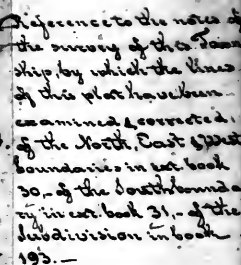 Reference to the notes of
the survey of this Town
ship, by which the lines
of this plat have been
examined & corrected,
of the North, East & West
boundaries in ext. book
30,- of the South bounda
ry in ext. book 31,- of the
Subdivision in book
193.-